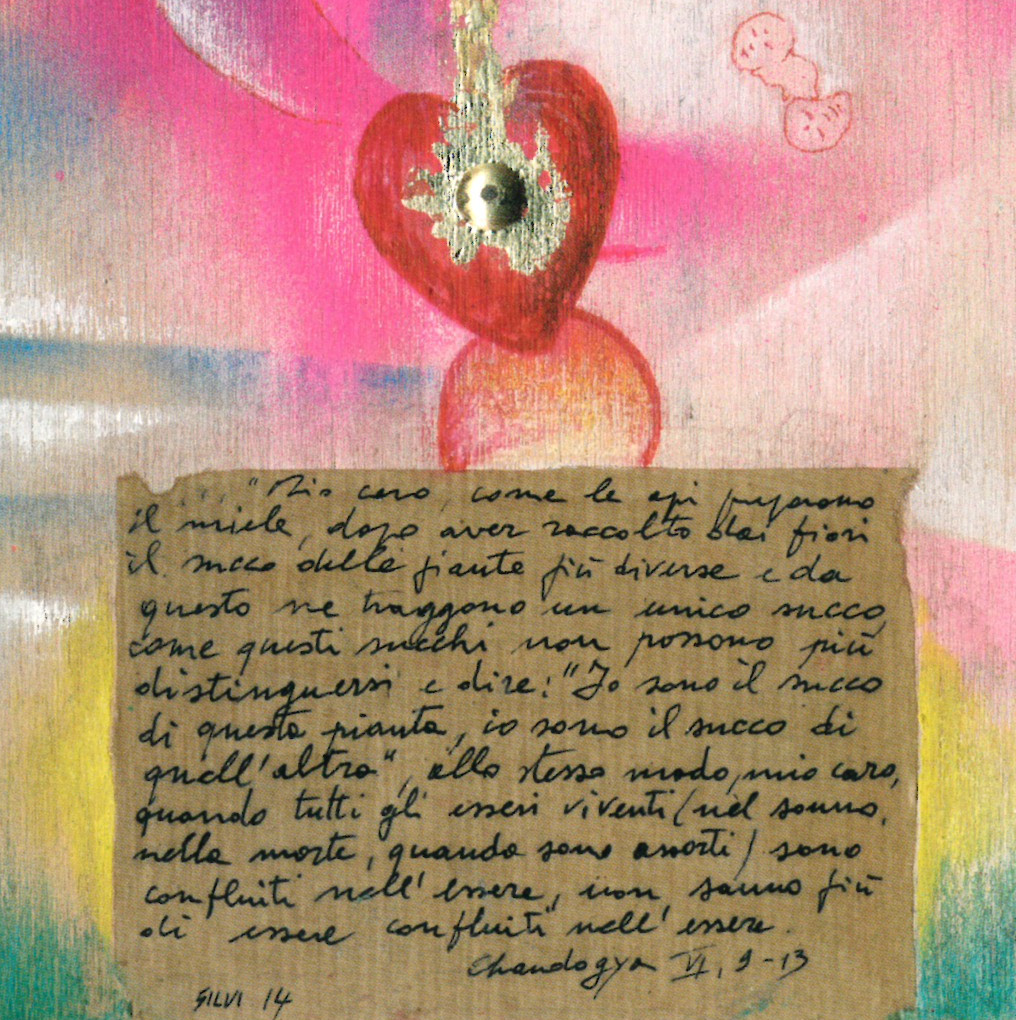 ... "Mio caro, come le api preparano
il miele, dopo aver raccolto dai fiori
il succo delle piante più diverse e da
questo ne traggono un unico succo,
come questi succhi non possono più
distinguersi e dire: "Io sono il succo
di questa pianta, io sono il succo di
quell'altra", allo stesso modo, mio caro,
quando tutti gli esseri viventi (nel sonno,
nella morte, quando sono assorti) sono
confluiti nell'essere, non sanno più
di essere confluiti nell'essere.
Chandogya VI, 9-13
SILVI 14